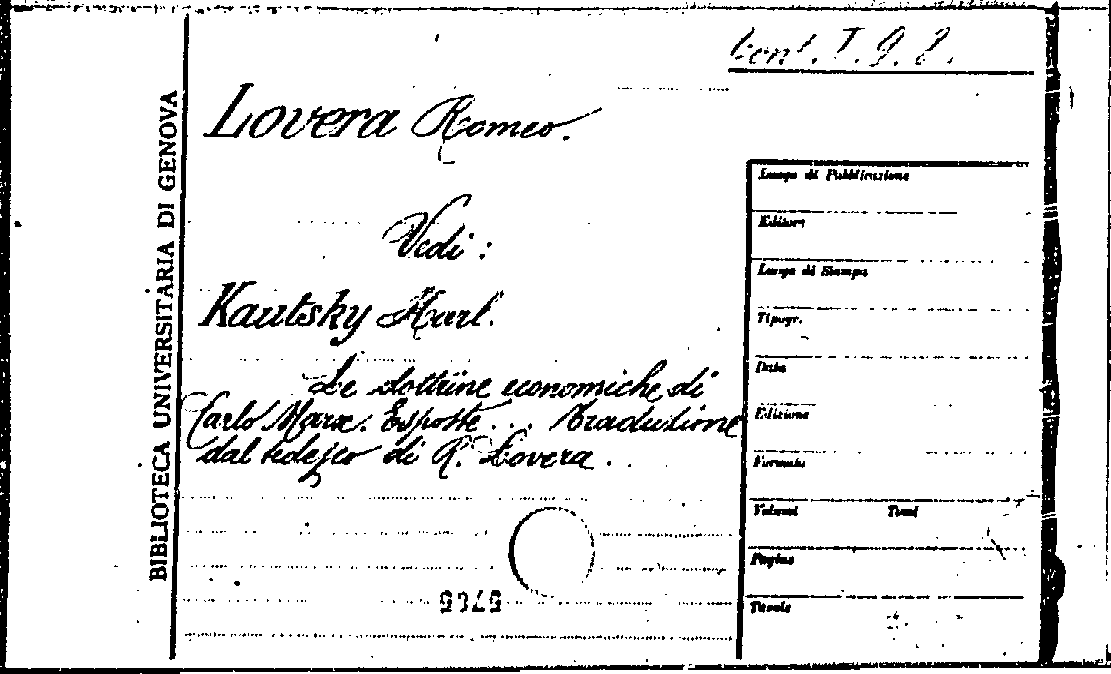 Cont. I. 9. 8.
BIBLIOTECA UNIVERSITARIA DI GENOVA
Lovera Romeo.
Vedi :
Kautsky Karl.
Le dottrine economiche di
Carlo Marx. Esposte ... Traduzione
dal tedesco di R. Lovera.
Luogo di Pubblicazione
Editore
Luogo di Stampa
Tipogr.
Data
Edizione
Formato
Volumi Tomi
Pagine
Tavole